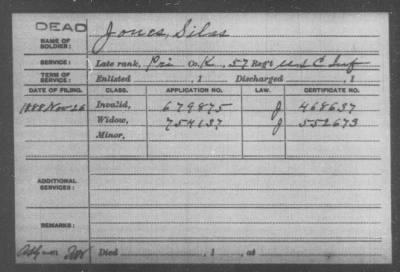 DEAD
NAME OF SOLDIER: Jones, Silas
SERVICE: Late rank, Pri Co. K, 57 Reg't U S C Inf
TERM OF SERVICE: Enlisted , 1 Discharged , 1
DATE OF FILING. CLASS. APPLICATION NO. LAW. CERTIFICATE NO.
1888 Nov 26 Invalid, 679875 J 468637
Widow, 754137 J 552673
Minor,
ADDITIONAL SERVICES:
REMARKS:
Died , 1 , at